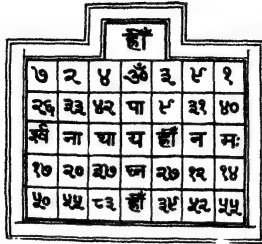 ह्रीं
७ २ ४ ॐ ३ ९ १
२६ ३३ ४२ पा ९ ३१ ४०
ना था य ह्रीं न मः
१७ २० ३७ घ्न २७ १२ १४
५० ५५ ८३ ह्रीं ३९ ५२ ५५